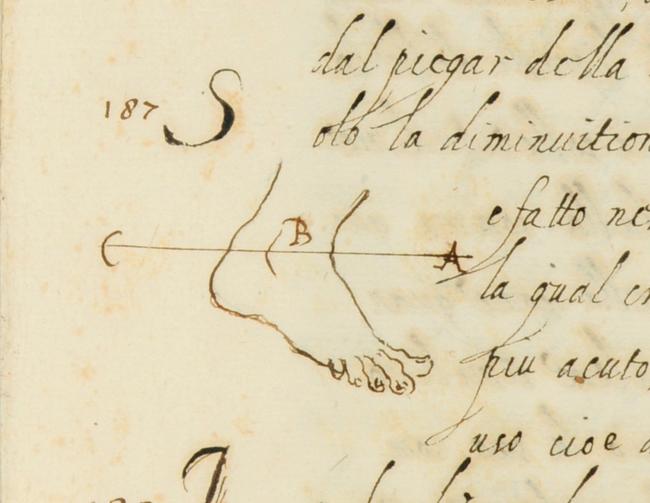 dal piegar della
187 Solo la diminuition
e fatto ne
B
C A
la qual
piu acuto
uso cioe